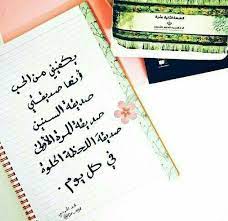 يكفيني من الحب
أنها صديقتي
صديقة السنين
صديقة المرة الأولى
صديقة اللحظة الحلوة
في كل يوم .